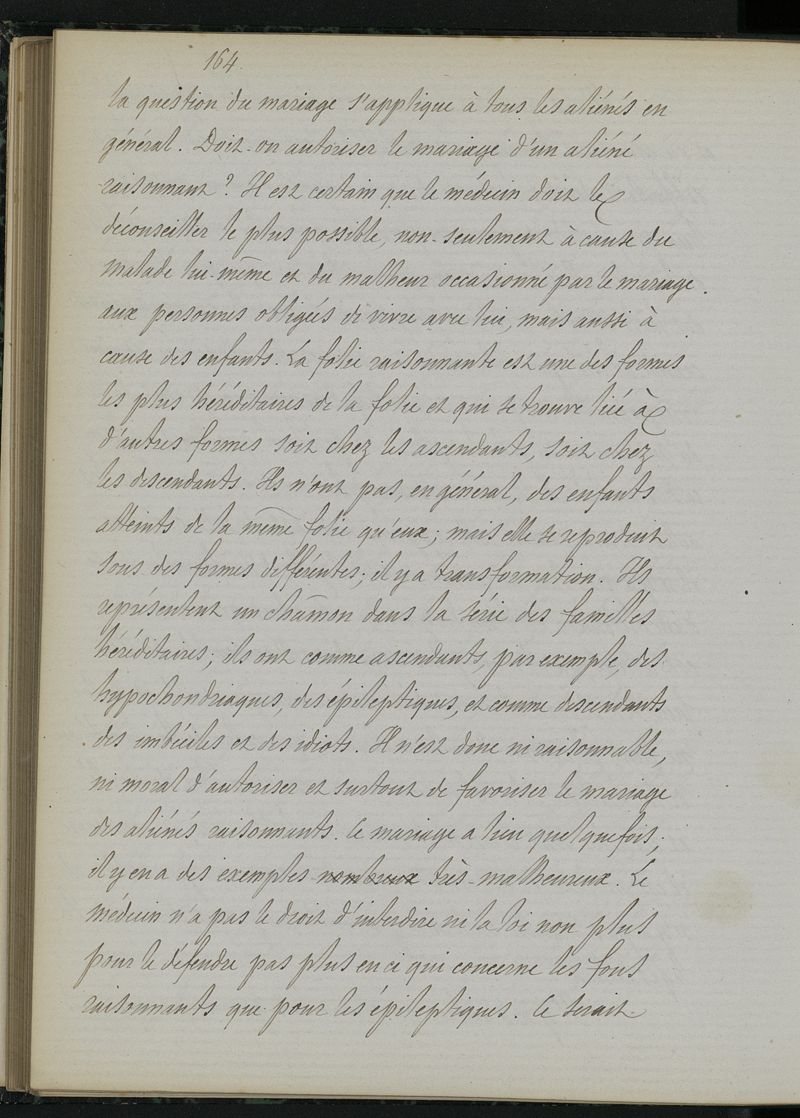 164.
la question du mariage s'applique à tous les aliénés en
général. Doit-on autoriser le mariage d'un aliéné
raisonnant ? Il est certain que le médecin doit le
déconseiller le plus possible, non-seulement à cause du
malade lui-même et du malheur occasionné par le mariage
aux personnes obligées de vivre avec lui, mais aussi à
cause des enfants. La folie raisonnante est une des formes
les plus héréditaires de la folie et qui se trouve liée à
d'autres formes soit chez les ascendants, soit chez
les descendants. Ils n'ont pas, en général, des enfants
atteints de la même folie qu'eux ; mais elle se reproduit
sous des formes différentes ; il y a transformation. Ils
représentent un chaînon dans la série des familles
héréditaires ; ils ont comme ascendants, par exemple, des
hypochondriaques, des épileptiques, et comme descendants
des imbéciles et des idiots. Il n'est donc ni raisonnable,
ni moral d'autoriser et surtout de favoriser le mariage
des aliénés raisonnants. Ce mariage a lieu quelquefois ;
il y en a des exemples nombreux très-malheureux. Le
médecin n'a pas le droit d'interdire ni la loi non plus
pour le défendre pas plus en ce qui concerne les fous
raisonnants que pour les épileptiques. Ce serait